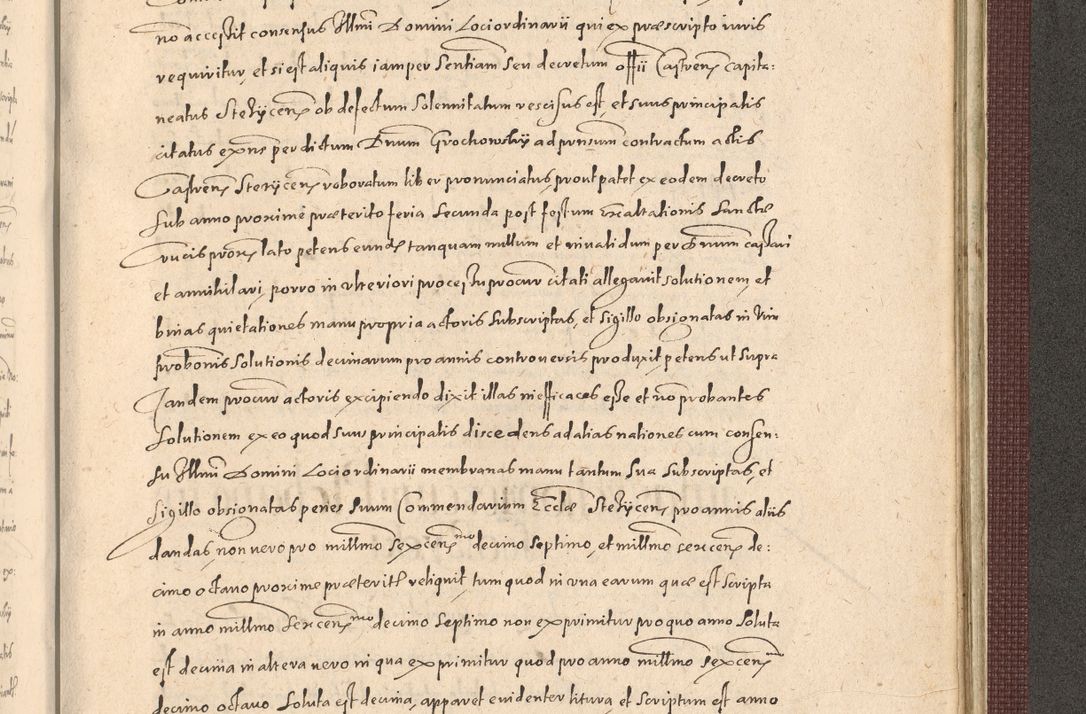 no accessit consensus Illmi Domini Lociordinarii qui ex præscripto iuris
requiritur, et si est aliquis iam per Sentiam seu decretum offii Castrens Capita:
neatus Stezycens ob defectum Solennitatum rescisus est, et suus principalis
citatus exns per dictum Dnum Grochowsky ad pnsum contractum actis
Castrens Stezycens roboratum liber pronunciatus, prout patet ex eodem decreto
sub anno proxime præterito feria Secunda post festum Exaltationis Sanctæ
Crucis lato petens eund tanquam nullum et invalidum per cassari
et annihilari, porro in ulteriori processu procur citati allegavit solutionem, et
binas quietationes manu propria actoris subscriptas, et sigillo obsignatas in vim
probonis solutionis decimarum pro annis controversis produxit petens ut supra
Tandem procur actoris excipiendo dixit illas inefficaces esse et no probantes
solutionem ex eo quod suus principalis discedens ad alias nationes cum consen:
su Illmi Domini Lociordinarii membranas manu tantum sua subscriptas, et
sigillo obsignatas penes suum Commendarium Ecclæ Stezycens pro annis aliis
dandas, non vero pro millmo sexcensmo decimo septimo, et millmo sexcens de:
cimo octavo proxime præterit reliquit, tum quod in una earum quæ est scripta
in anno millmo sexcensmo decimo septimo non exprimitur pro quo anno soluta
est decima in altera vero in qua exprimitur quod pro anno millmo sexcensmo
decimo octavo soluta est decima, apparet evidenter litura, et scriptum est anno